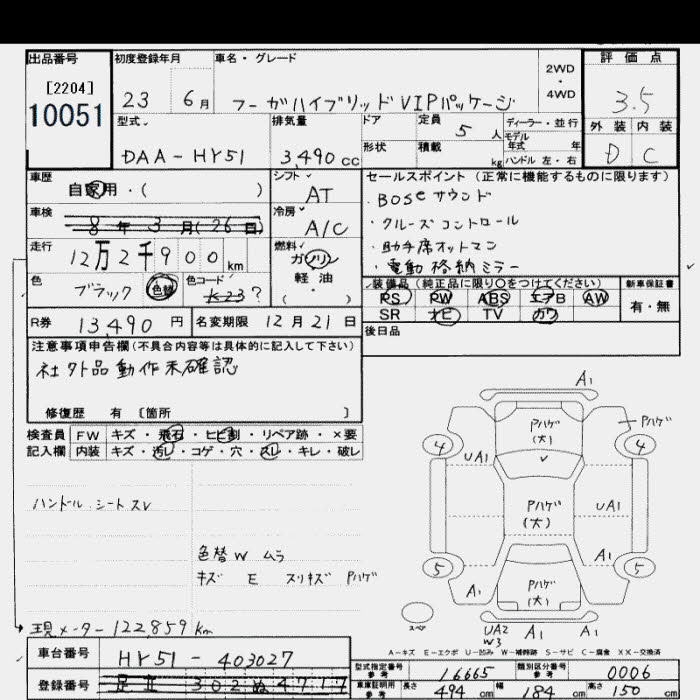 出品番号 初度登録年月 車名・グレード 2WD・4WD 評価点
[2204]
10051
23 6月 フーガハイブリッドVIPパッケージ 3.5
型式 排気量 ドア 定員 5人 ディーラー・並行 外装 内装
DAA-HY51 3,490cc 形状 積載 kg モデル年式 年 ハンドル 左・右 D C
車歴 自家用・( ) シフト AT セールスポイント (正常に機能するものに限ります)
・BOSEサウンド
車検 8年3月(26日) 冷房 A/C ・クルーズコントロール
・助手席オットマン
走行 12万2千900km 燃料 ガソリン ・電動格納ミラー
軽油・( )
色 ブラック 色替 色コード K23? 装備品 (純正品に限り○をつけてください) 新車保証書
PS PW ABS エアB AW 有・無
SR ナビ TV カワ
R券 13,490円 名変期限 12月21日 後日品
注意事項申告欄(不具合内容等は具体的に記入して下さい)
社外品動作未確認
修復歴 有 〔箇所 〕
検査員 FW キズ・飛石・ヒビ割・リペア跡・×要
記入欄 内装 キズ・汚レ・コゲ・穴・スレ・キレ・破レ
ハンドル.シートスレ
色替W ムラ
キズ E スリキズ Pハゲ
現メーター122,859km
A1
Pハゲ(大) Pハゲ
4 4
UA1
Pハゲ(大) UA1
A1
5 5
Pハゲ(大)
A1 A1
スペア UA2 W3 A1 A1
A-キズ E-エクボ U-凹み W-補修跡 S-サビ C-腐食 XX-交換済
車台番号 HY51-403027 型式指定番号 参考 16665 類別区分番号 参考 0006
登録番号 足立 302 ぬ 4717 車庫証明用 参考 長さ 494cm 幅 184cm 高さ 150cm